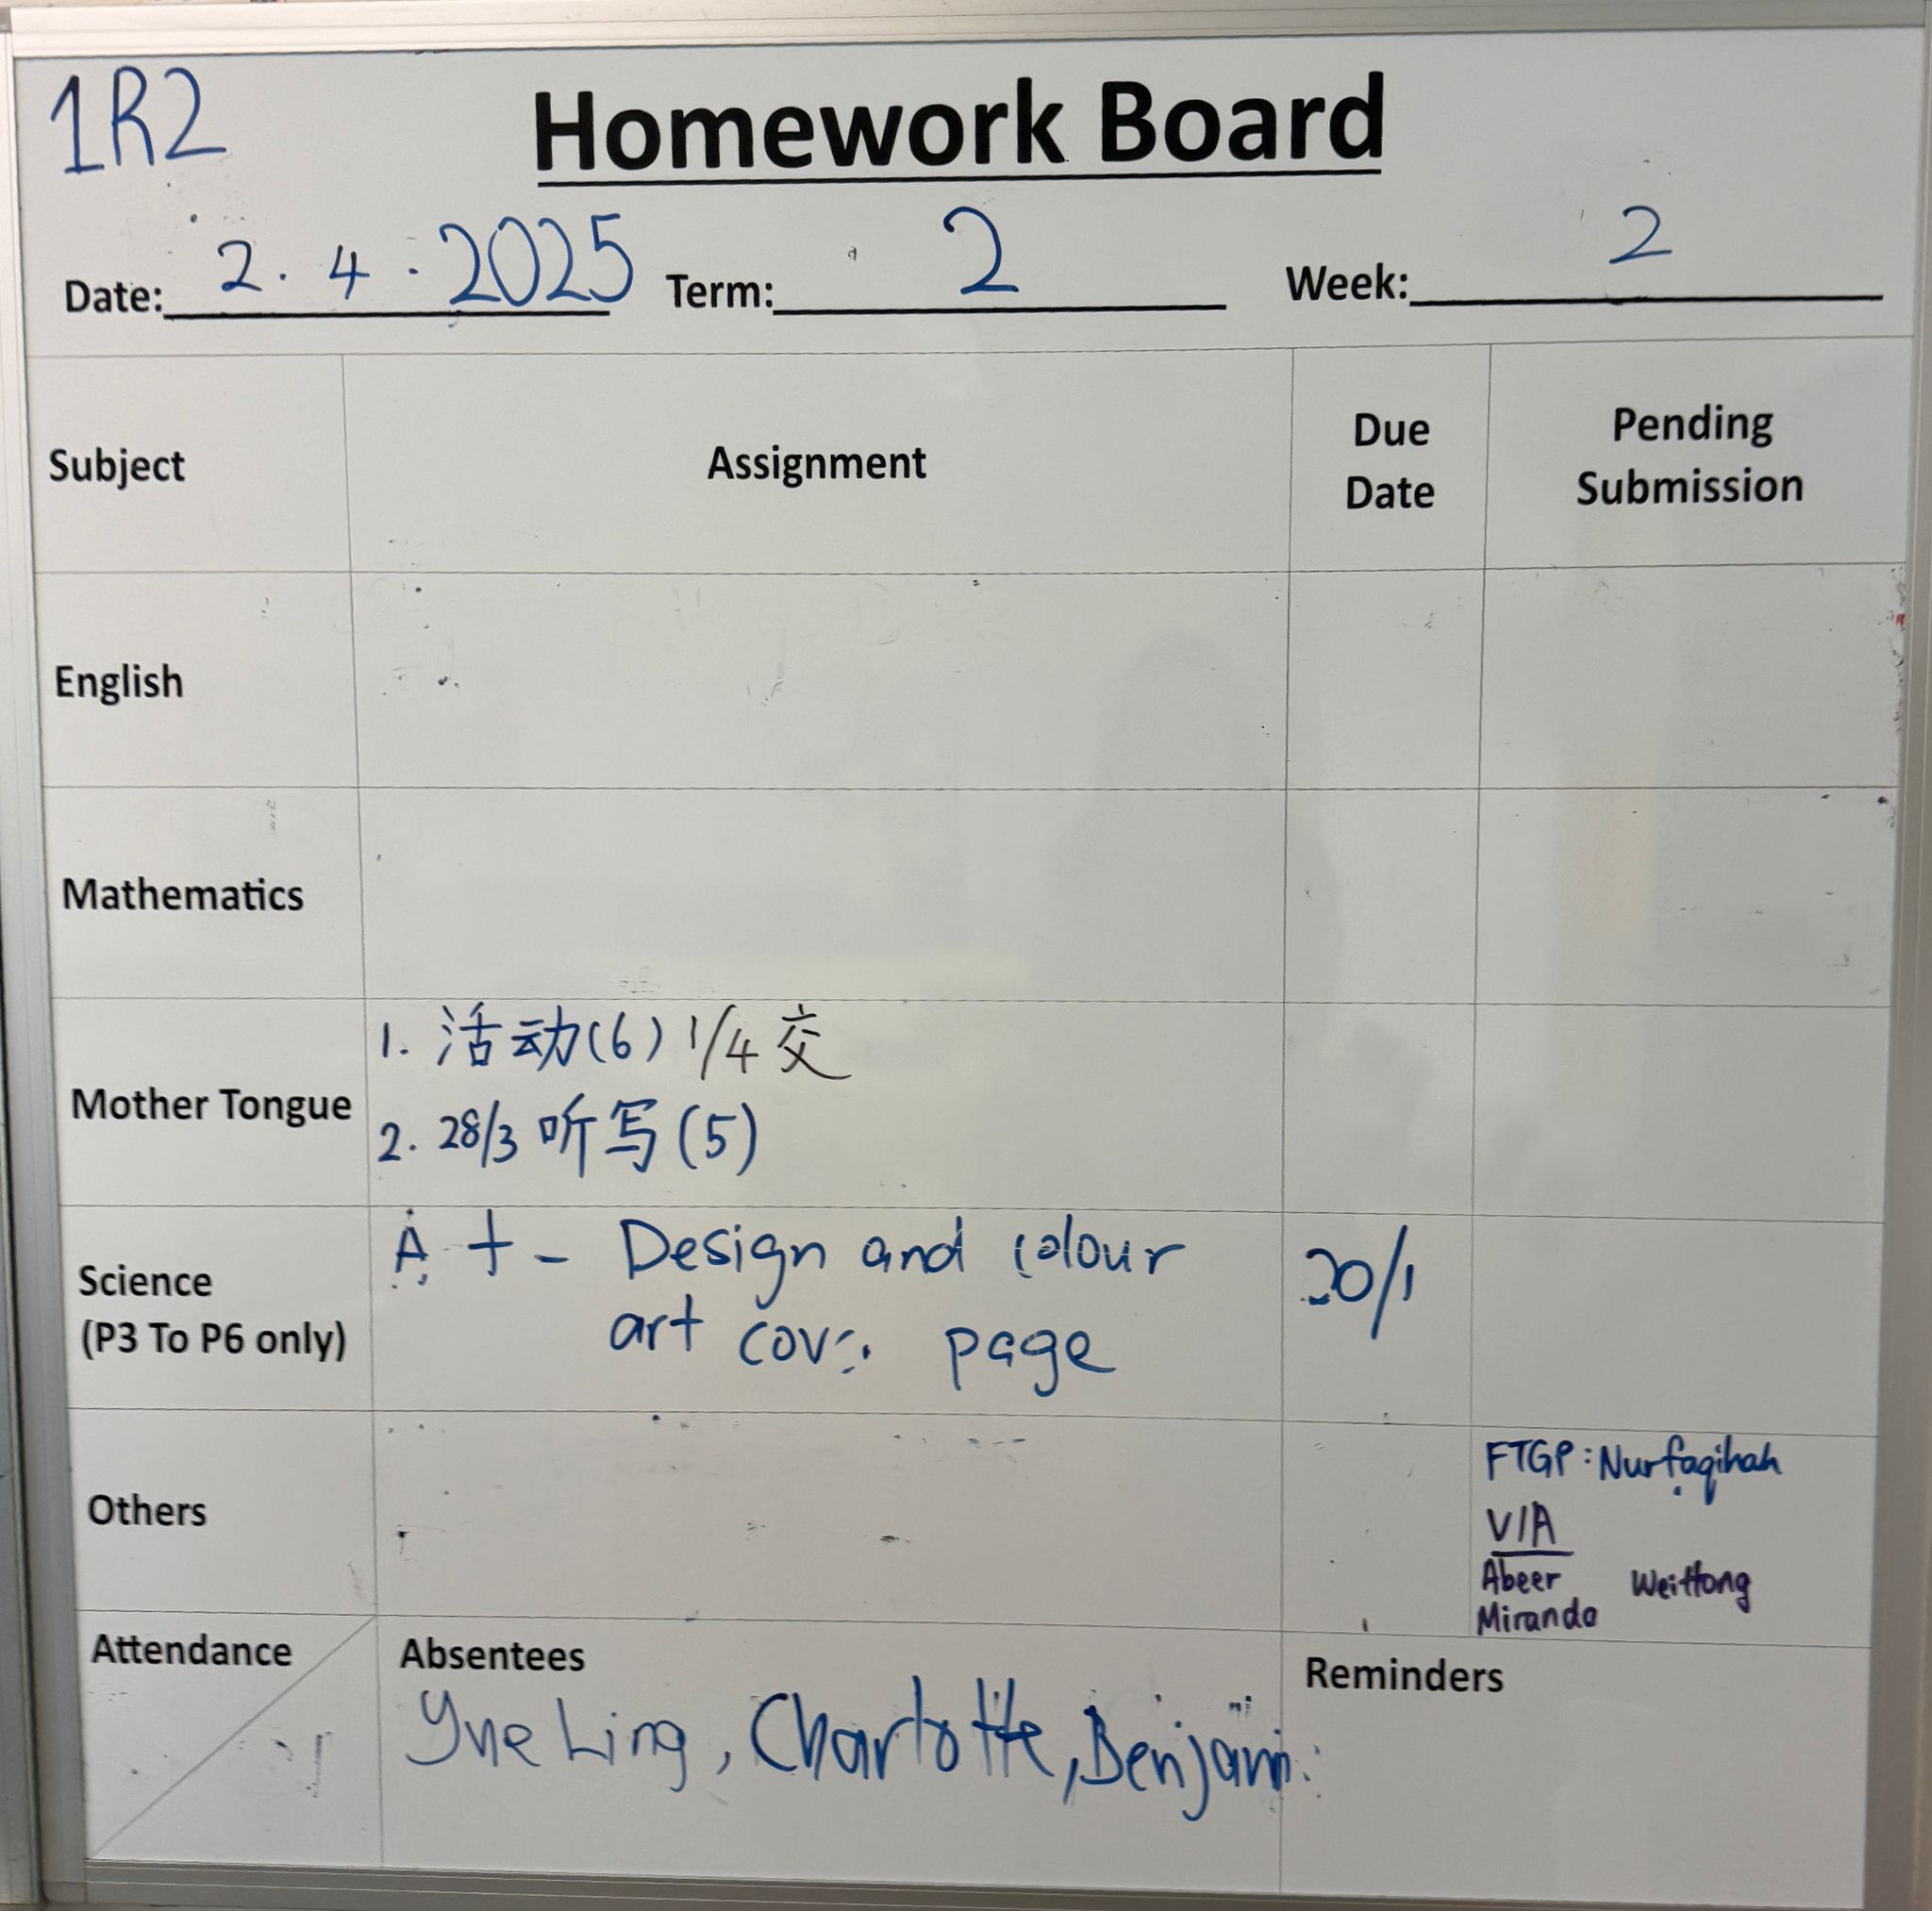 1R2
Homework Board
Date: 2.4.2025 Term: 2 Week: 2
Subject Assignment Due Date Pending Submission
English
Mathematics
Mother Tongue
1. 活动(6) 1/4 交
2. 28/3 听写(5)
Science
(P3 To P6 only)
Design and colour
art page
Others
FTGP: Nurfaqihah
VIA
Abeer Weittong
Miranda
Attendance Absentees Reminders
Yue Ling, Charlotte, Benjamin